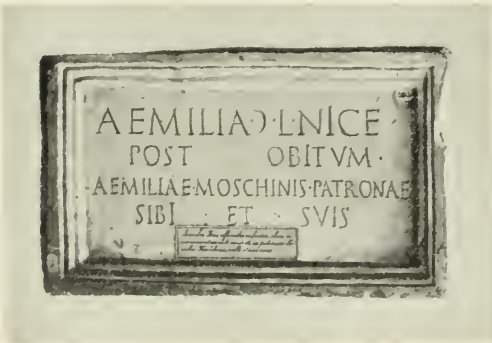 AEMILIA·Ɔ·L·NICE·
POST OBITVM·
·AEMILIAE·MOSCHINIS·PATRONAE
SIBI · ET · SVIS